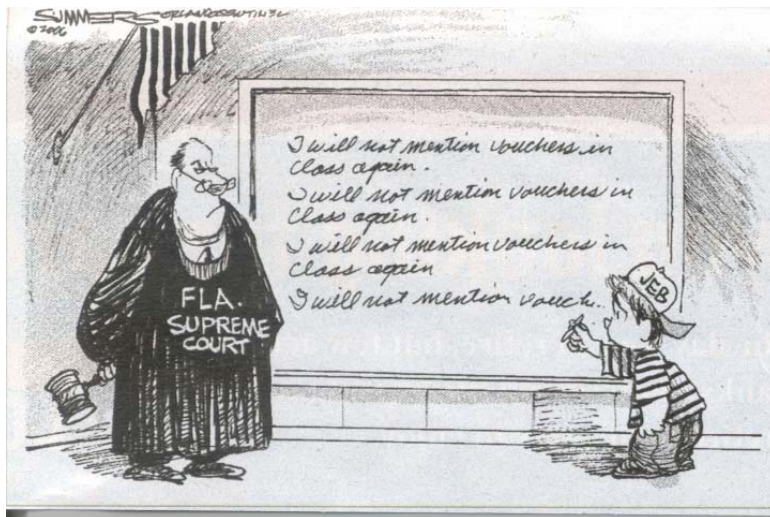 SUMMERS ORLANDO SENTINEL
© 2006
I will not mention vouchers in
class again.
I will not mention vouchers in
class again.
I will not mention vouchers in
class again
I will not mention vouch..
JEB
FLA.
SUPREME
COURT